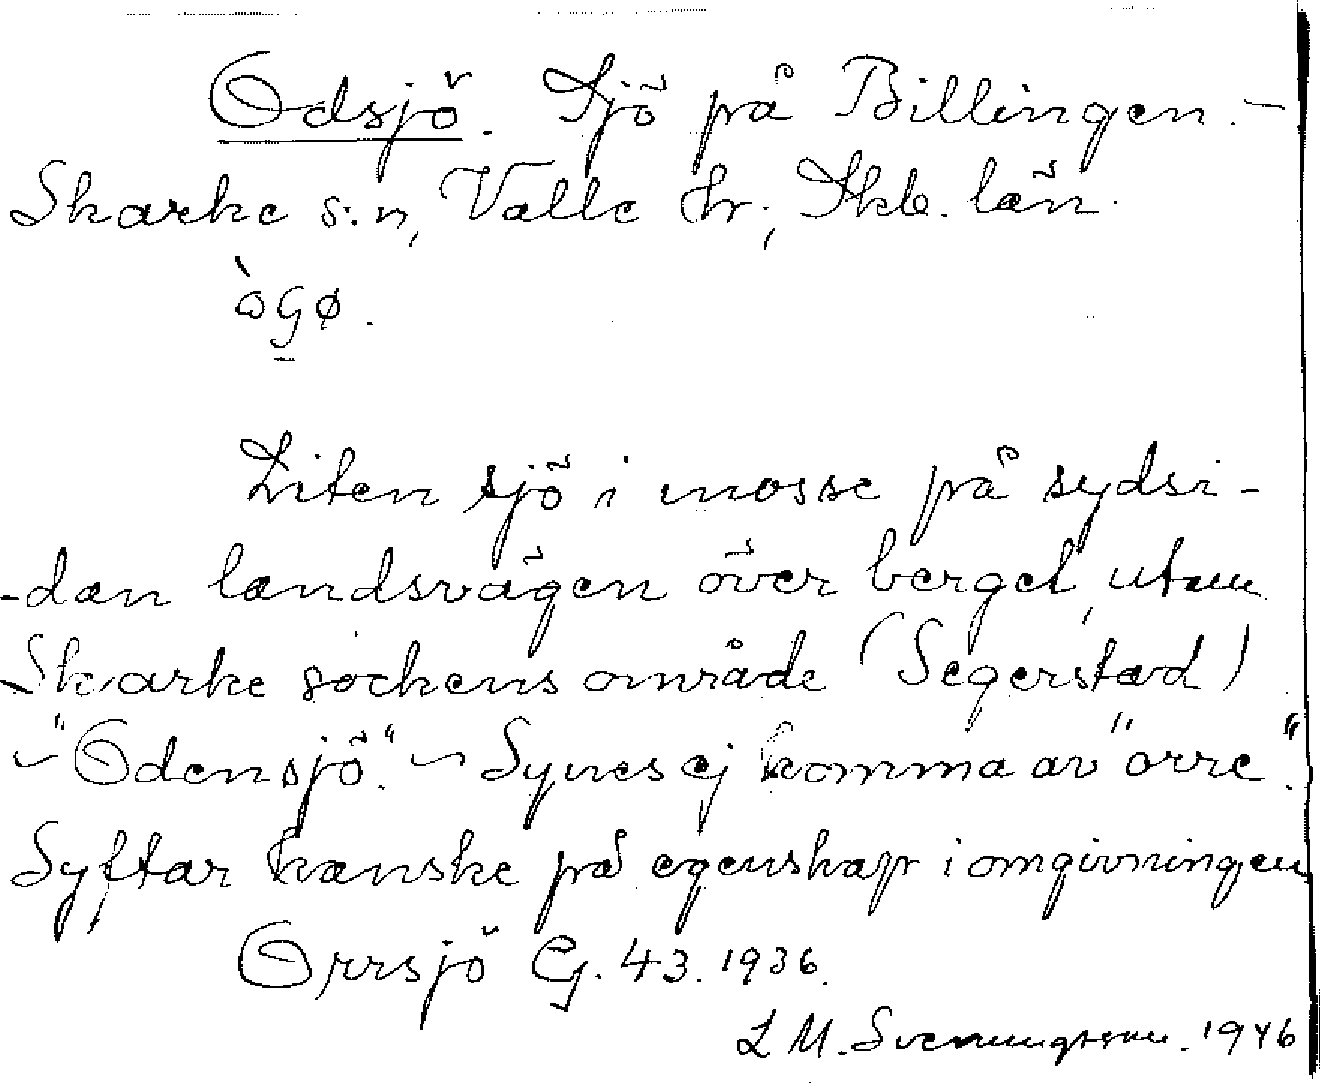 Odsjö. Sjö på Billingen. -
Skarke s:n, Valle hr, Skb. län.
Liten sjö i mosse på sydsi-
-dan landsvägen över berget, utom
Skarke sockens område (Segerstad)
~ "Odensjö." ~ Synes ej komma av "orre".
Syftar kanske på egenskap i omgivningen
Orrsjö G. 43. 1936.
L M. Svenungsson. 1946